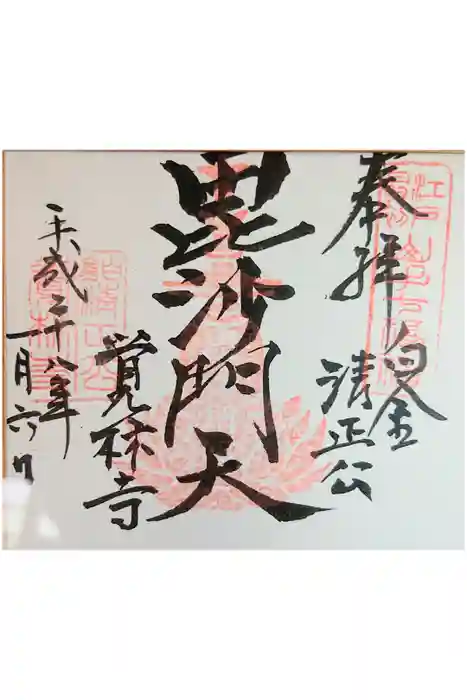 奉拝
白金
清正公
毘沙門天
覚林寺
平成二十八年
一月六日